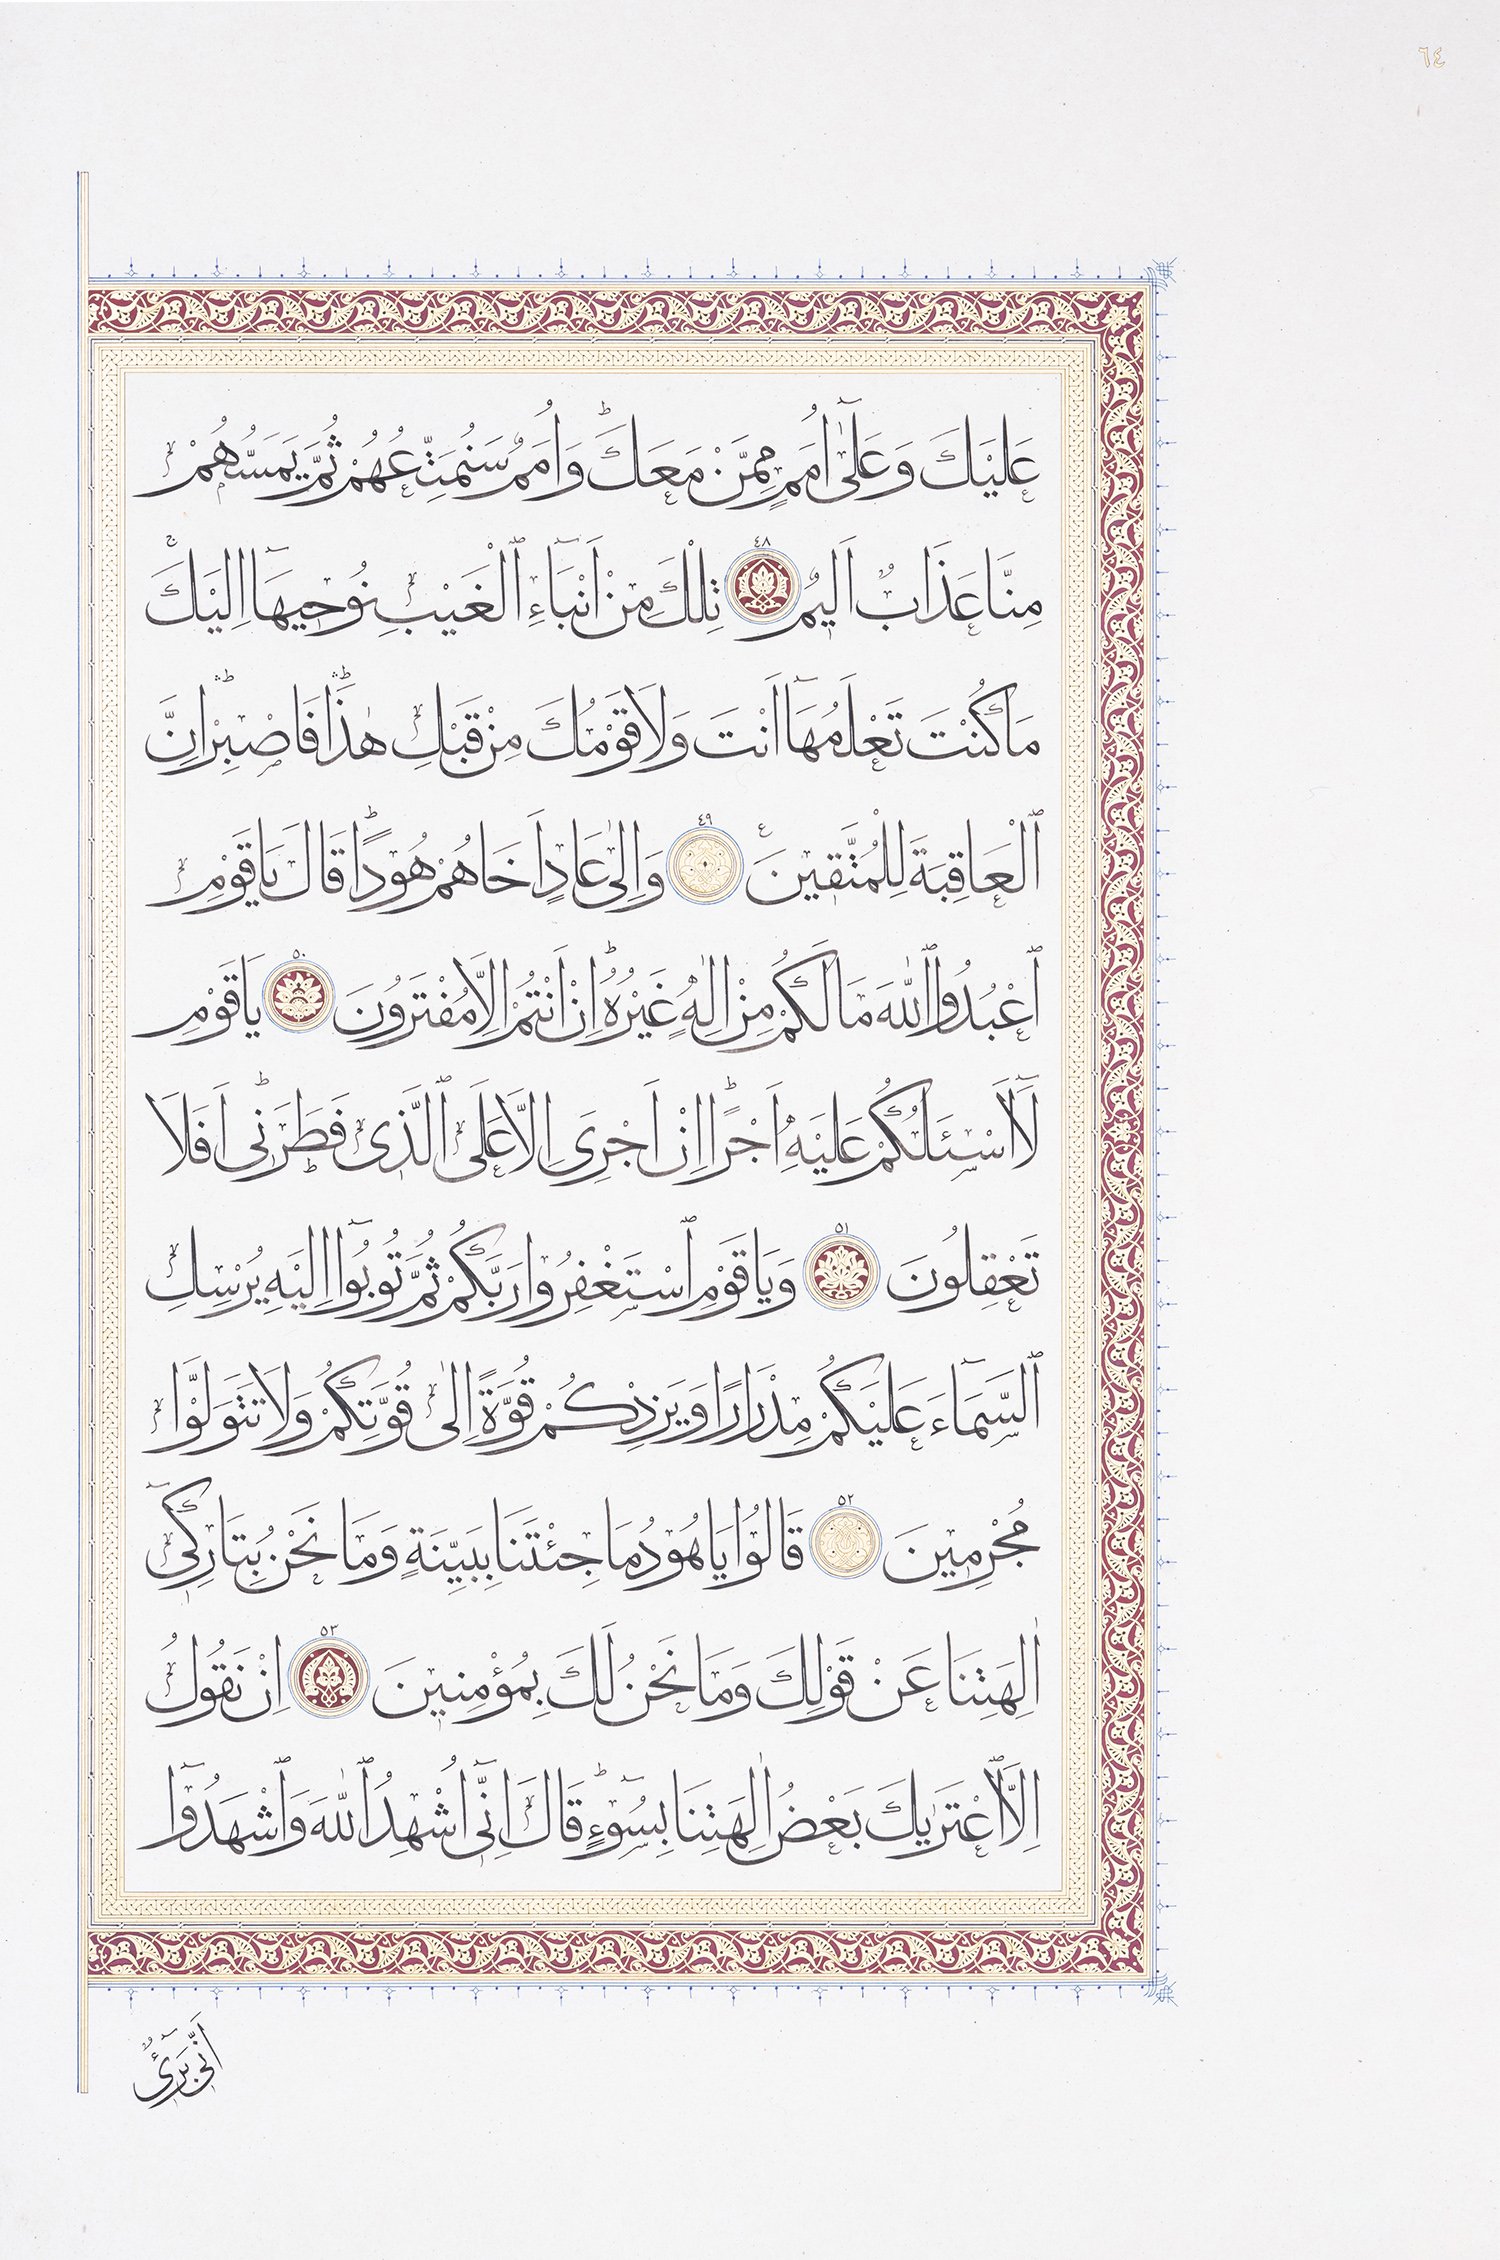 ٦٤
عَلَيْكَ وَعَلٰٓى اُمَمٍ مِمَّنْ مَعَكَۜ وَاُمَمٌ سَنُمَتِّعُهُمْ ثُمَّ يَمَسُّهُمْ
مِنَّا عَذَابٌ اَلِيمٌ ٤٨ تِلْكَ مِنْ اَنْبَٓاءِ ٱلْغَيْبِ نُوحِيهَٓا اِلَيْكَۚ
مَا كُنْتَ تَعْلَمُهَٓا اَنْتَ وَلَا قَوْمُكَ مِنْ قَبْلِ هٰذَاۛ فَاصْبِرْۛ اِنَّ
ٱلْعَاقِبَةَ لِلْمُتَّقِينَ ٤٩ وَاِلٰى عَادٍ اَخَاهُمْ هُودًاۜ قَالَ يَاقَوْمِ
ٱعْبُدُوا ٱللّٰهَ مَا لَكُمْ مِنْ اِلٰهٍ غَيْرُهُۜ اِنْ اَنْتُمْ اِلَّا مُفْتَرُونَ ٥٠ يَاقَوْمِ
لَٓا اَسْـَٔلُكُمْ عَلَيْهِ اَجْرًاۜ اِنْ اَجْرِىَ اِلَّا عَلَى ٱلَّذِى فَطَرَنِىۜ اَفَلَا
تَعْقِلُونَ ٥١ وَيَاقَوْمِ ٱسْتَغْفِرُوا رَبَّكُمْ ثُمَّ تُوبُٓوا اِلَيْهِ يُرْسِلِ
ٱلسَّمَٓاءَ عَلَيْكُمْ مِدْرَارًا وَيَزِدْكُمْ قُوَّةً اِلٰى قُوَّتِكُمْ وَلَا تَتَوَلَّوْا
مُجْرِمِينَ ٥٢ قَالُوا يَاهُودُ مَا جِئْتَنَا بِبَيِّنَةٍ وَمَا نَحْنُ بِتَارِكِىٓ
اٰلِهَتِنَا عَنْ قَوْلِكَ وَمَا نَحْنُ لَكَ بِمُؤْمِنِينَ ٥٣ اِنْ نَقُولُ
اِلَّا ٱعْتَرٰيكَ بَعْضُ اٰلِهَتِنَا بِسُٓوءٍۜ قَالَ اِنِّىٓ اُشْهِدُ ٱللّٰهَ وَٱشْهَدُٓوا
اَنِّى بَرِٓىءٌ